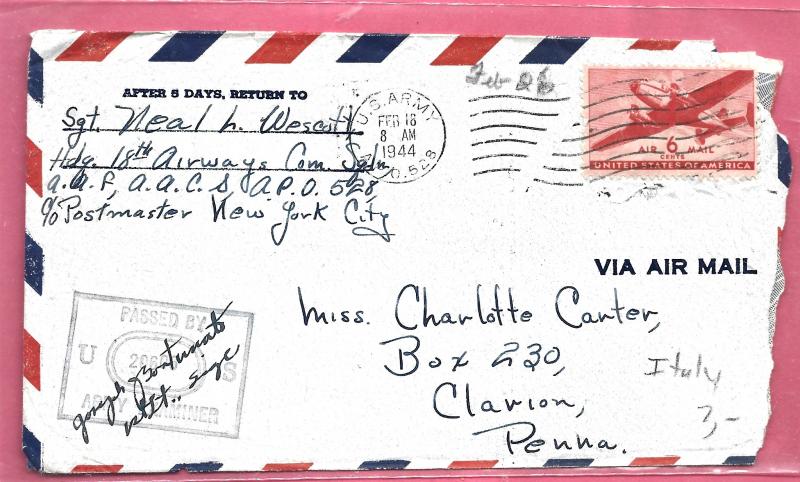 AFTER 5 DAYS, RETURN TO
Sgt. Neal L. Wescott
Hdq. 18th Airways Com. Sqdn.
A.A.F., A.A.C.S., A.P.O. 528,
c/o Postmaster New York City
U.S. ARMY
FEB 18
8 AM
1944
A.P.O. 528
Feb 26
AIR 6 MAIL
CENTS
UNITED STATES OF AMERICA
VIA AIR MAIL
Miss. Charlotte Carter,
Box 230,
Clarion,
Penna.
Italy
3,-
PASSED BY
U S
ARMY EXAMINER
Joseph Fortunato
1st Lt.